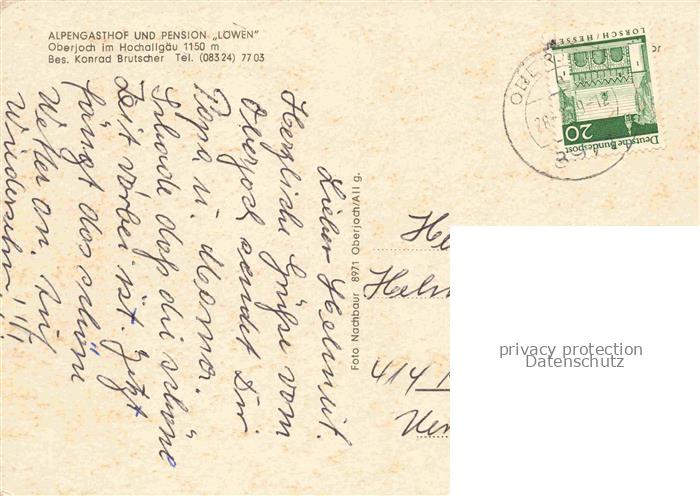 ALPENGASTHOF UND PENSION „LÖWEN"
Oberjoch im Hochallgäu 1150 m
Bes. Konrad Brutscher Tel. (08324) 7703
Lieber Helmut.
Herzliche Grüße vom
Oberjoch sendet Dir
Papa u. Mama.
Schade daß die schöne
Zeit vorbei ist. Jetzt
fängt das schöne
Wetter an. Auf
Wiedersehn!!!
Foto Nachbaur 8971 Oberjoch/Allg.
LORSCH/HESSEN
20
Deutsche Bundespost
OBE
28
-12
897
or
He
Helm
414
privacy protection
Datenschutz